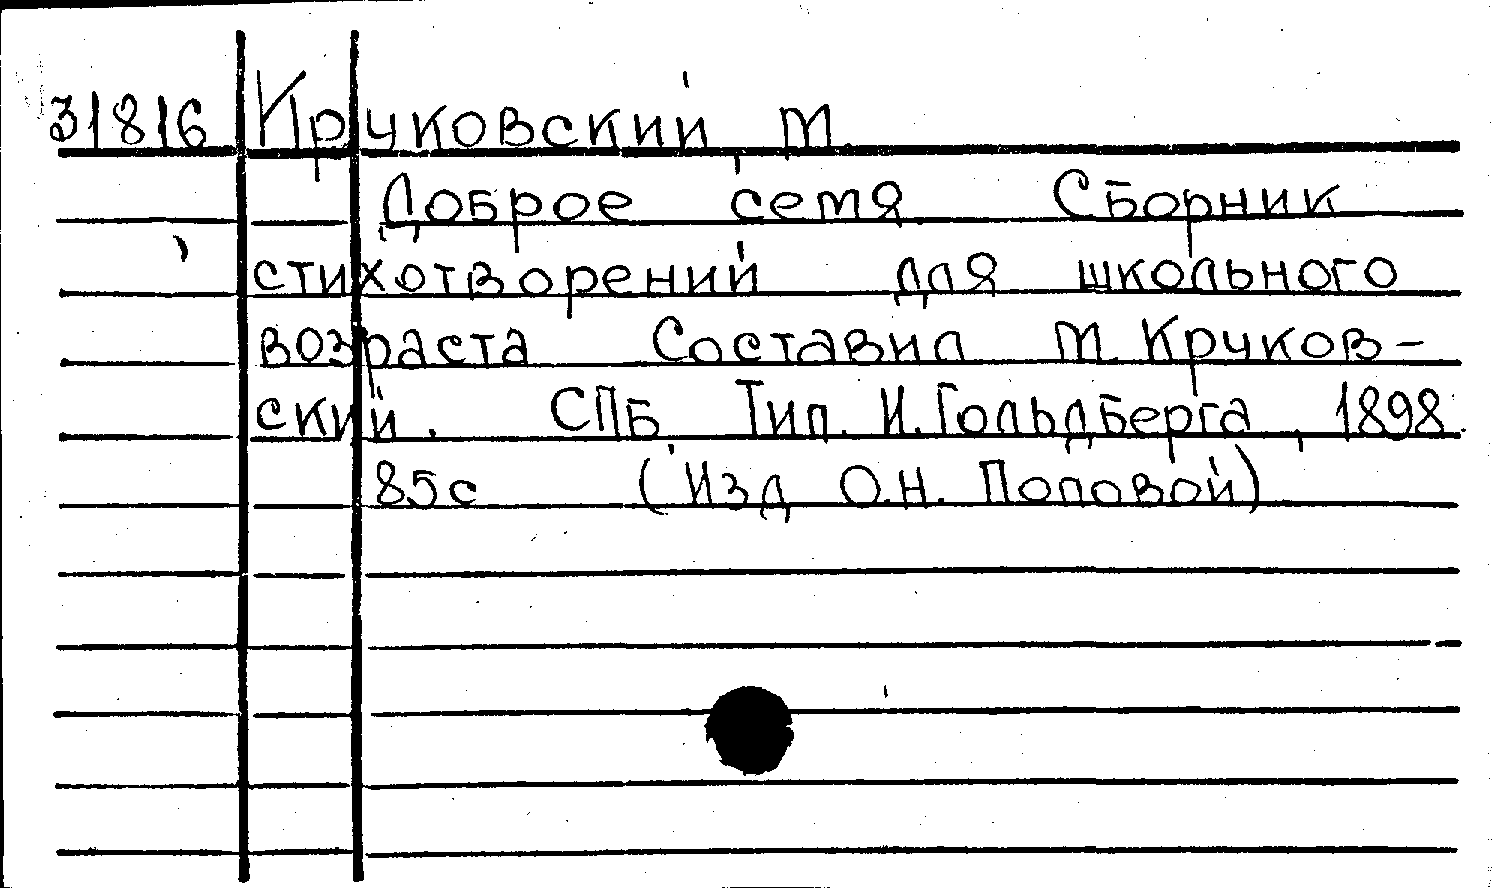 31816 Круковский, М.
Доброе семя Сборник
стихотворений для школьного
возраста Составил М. Круков-
ский. СПБ, Тип. И. Гольдберга, 1898.
85с (Изд О.Н. Поповой)